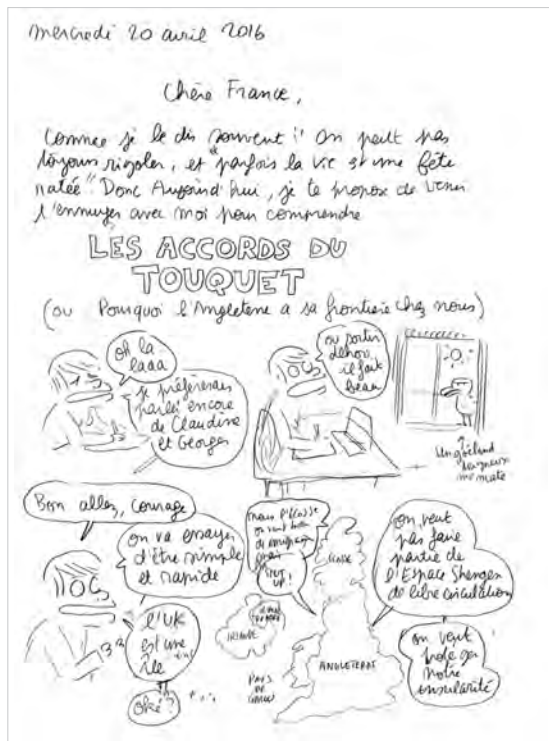 mercredi 20 avril 2016
Chère France,
Comme je le dis souvent : "On peut pas
toujours rigoler, et parfois la vie est une fête
ratée" Donc Aujourd'hui, je te propose de venir
t'ennuyer avec moi pour comprendre
LES ACCORDS DU
TOUQUET
(ou Pourquoi l'Angleterre a sa frontière chez nous)
oh la
laaa
je préfèrerais
parler encore
de Claudine
et Georges
ou sortir
dehors
il fait
beau
Un goéland
me mate
Bon allez, courage
on va essayer
d'être simple
et rapide
l'UK
est une
île
oké ?
mais l'Écosse
on veut bien
SHUT
UP !
ECOSSE
IRLANDE
PAYS
DE
GALLES
ANGLETERRE
on veut
pas faire
partie de
l'Espace Shengen
de libre circulation
on veut
notre
insularité